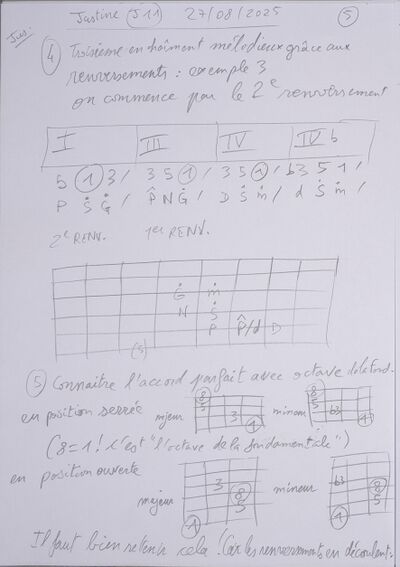 Justine (J11) 27/08/2025 (5)
Jus:
(4) Troisième enchaînement mélodieux grâce aux
renversements : exemple 3
on commence par le 2e renversement
I III IV IV b
5 (1) 3 / 3 5 (1) / 3 5 (1) / b3 5 1 /
P Ṡ Ġ / P̂ N Ġ / D Ṡ ṁ / d Ṡ ṁ /
2e RENV. 1er RENV.
Ġ ṁ
N Ṡ
P P̂/d D
(5)
(5) Connaître l'accord parfait avec octave de la fond.
en position serrée majeur 8 5 3 (1) mineur 8 5 b3 (1)
(8=1 ! c'est "l'octave de la fondamentale")
en position ouverte
majeur 3 8 5 (1) mineur b3 8 5 (1)
Il faut bien retenir cela ! Car les renversements en découlent.